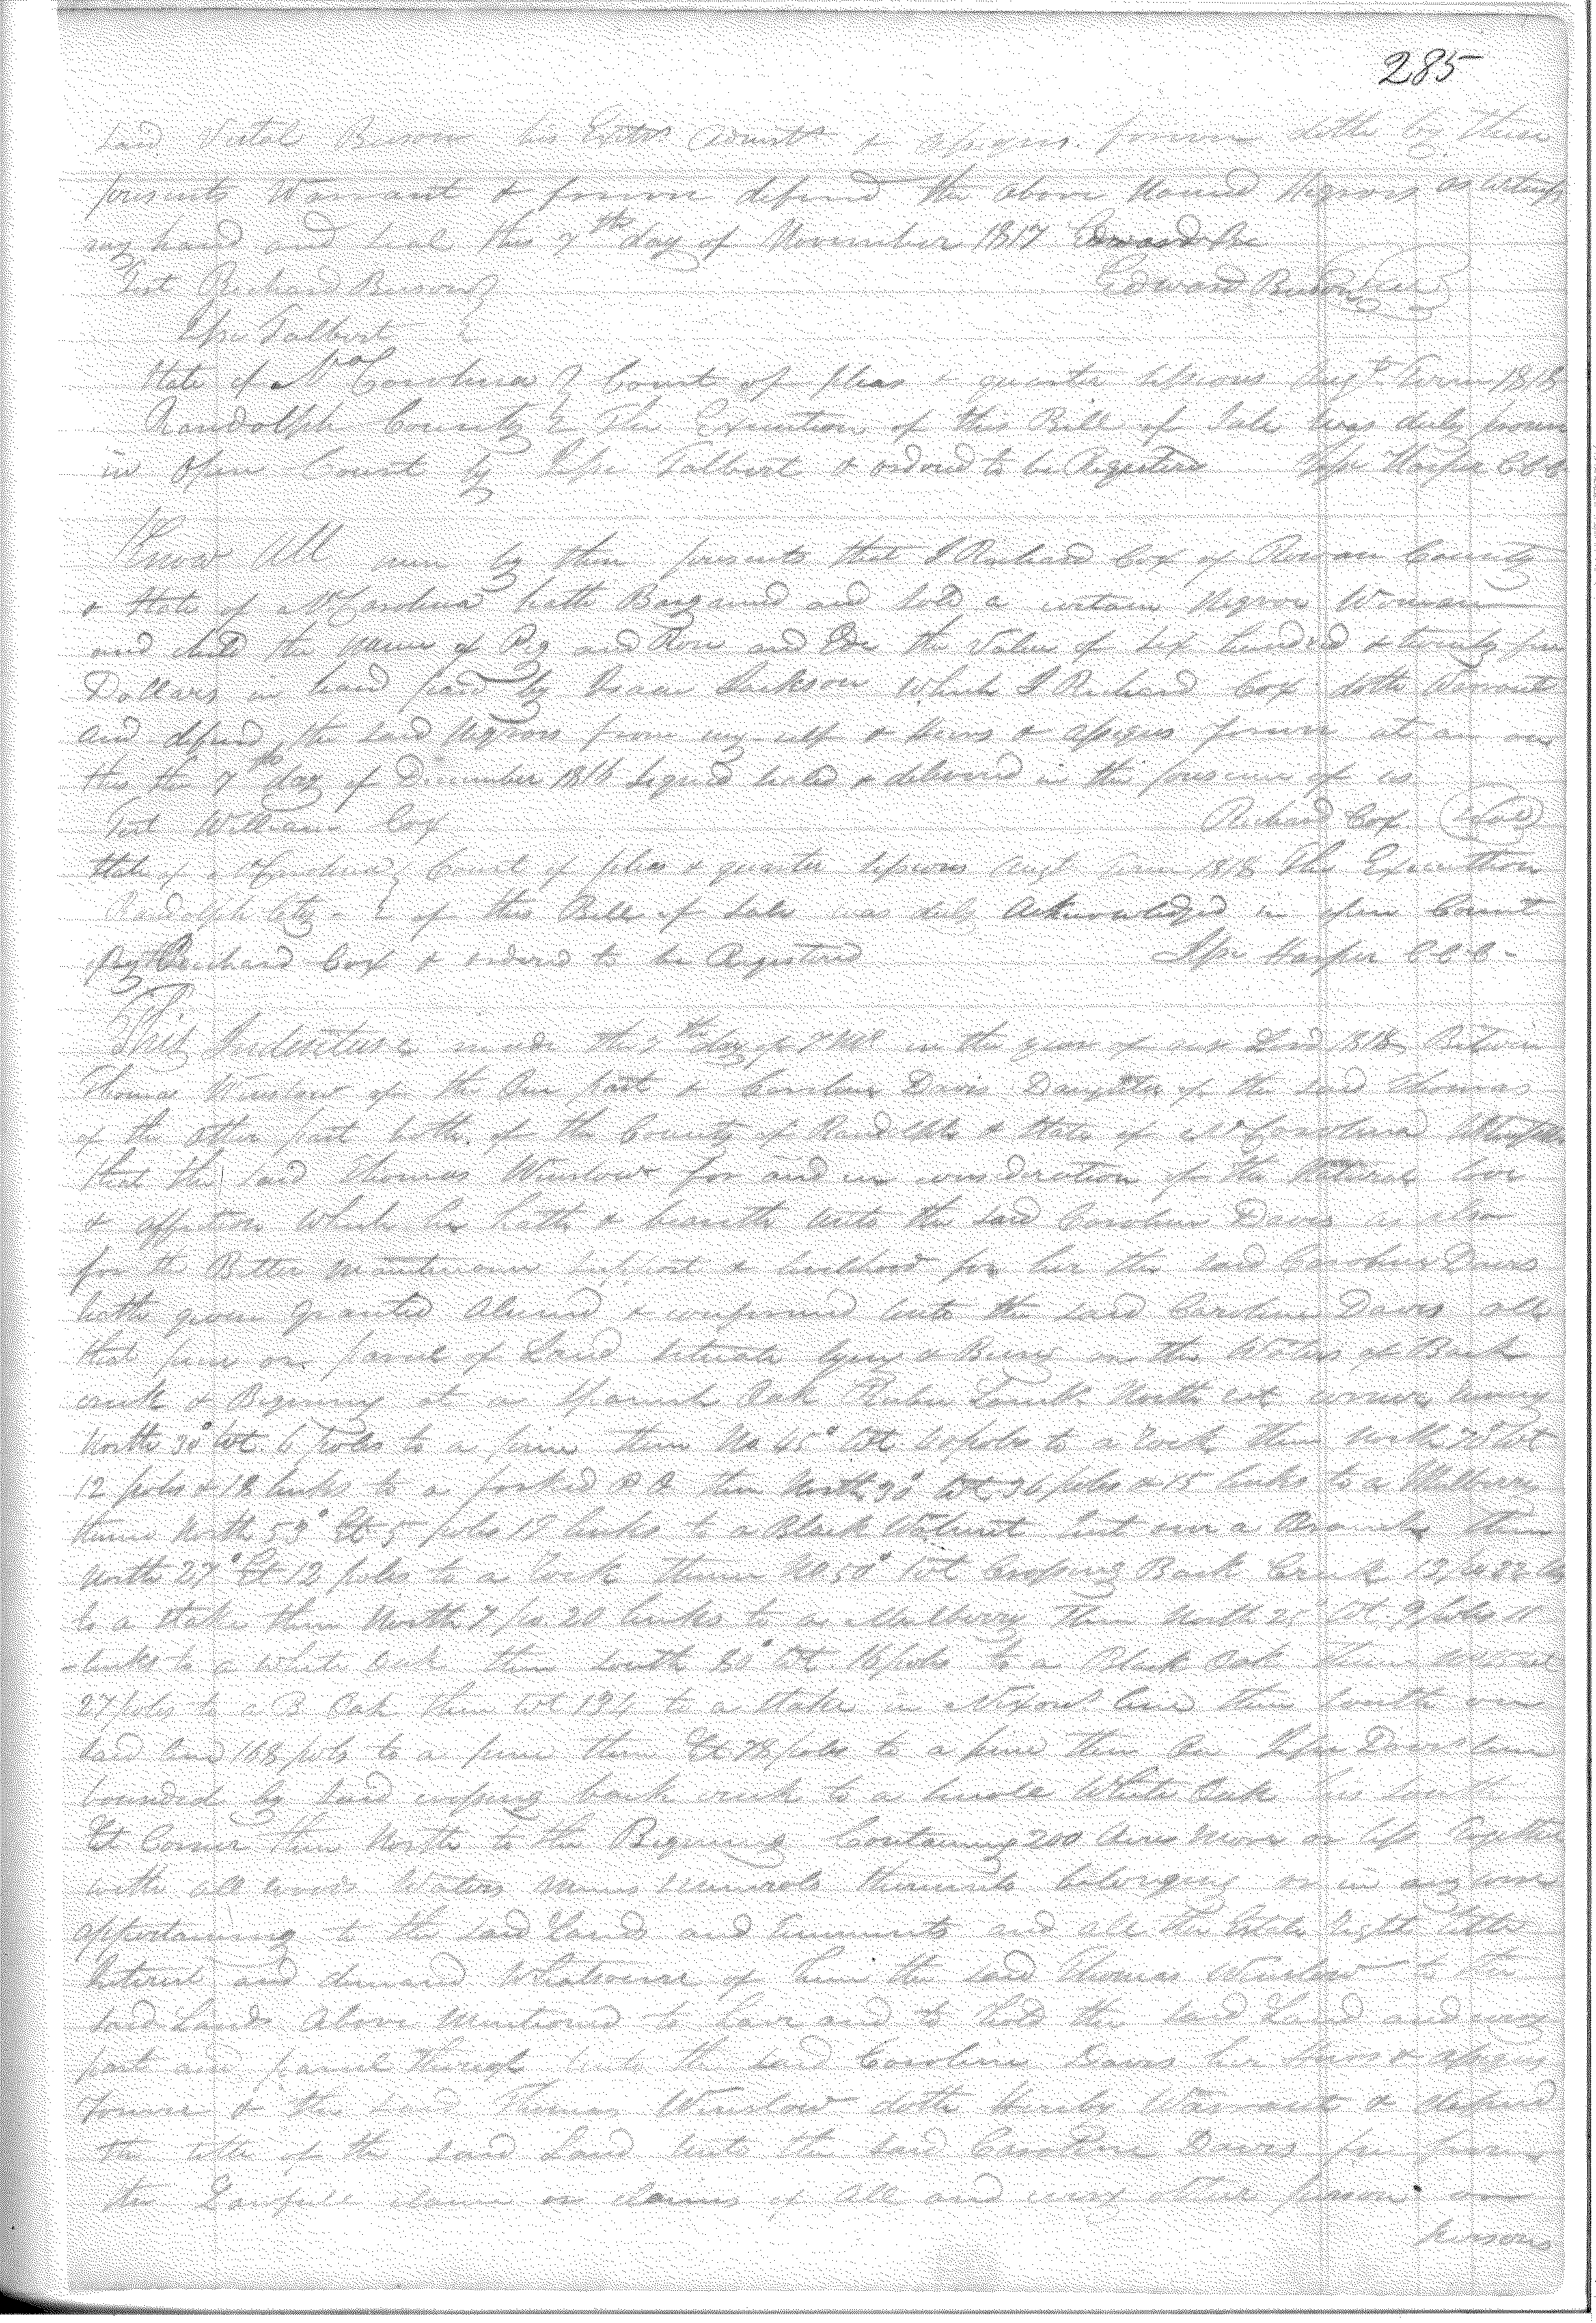 285
Said Vestal Beeson his Extrs Admtrs & assigns forever doth by these
presents Warrant & forever defend the above Named Negroes as witness
my hand and Seal this 7th day of November 1817 Edward Bee
Test Richard Beeson Edward Beeson Seal
Jesse Talbert
State of No Carolina Court of pleas & quarter sessions Augt Term 1818
Randolph County The Execution of this Bill of Sale was duly proven
in Open Court by Jesse Talbert & ordered to be Registered Jesse Harper C C C
Know All men by these presents that I Richard Cox of Rowan County
& State of No Carolina hath Bargained and Sold a certain Negroe Woman
and child the name of Peg and Rose and the Value of Six hundred & twenty five
Dollars in hand paid by Isaac Jackson which I Richard Cox doth Warrant
and defend the Said Negroes from my self & Heirs & assigns forever
this the 7th day of December 1816 Signed Sealed & delivered in the presence of us
Test William Cox Richard Cox Seal
State of No Carolina Court of pleas & quarter sessions Augt Term 1818 The Execution
Randolph Cty of this Bill of Sale was duly Acknowledged in open Court
by Richard Cox & ordered to be Registered Jesse Harper C C C
This Indenture made the 7th day of in the year of our Lord 1818 Between
Thomas Winslow of the One part & Caroline Davis Daughter of the said Thomas
of the other part both of the County of Randolph & State of No Carolina Witnesseth
that the Said Thomas Winslow for and in consideration of the Natural love
& affection which he hath & beareth unto the said Caroline Davis as also
for the Better maintenance support & livelihood for her the said Caroline Davis
hath given granted aliened & confirmed unto the said Caroline Davis all
that piece or parcel of Land situate lying & Being on the Waters of Back
creek & Begining at a Spanish Oak North corner runing
North 30° Wt 6 poles to a pine then No 45° Wt poles to a rock then North Wt
12 poles & 18 links to a forked then North 30° Wt 36 poles & 15 links to a Mulberry
thence North 59° Et 5 poles 17 links to a Black Walnut then
North 27° Et 12 poles to a rock thence No 50° Wt Crossing Back Creek
to a stake then North 7 po 20 links to a Mulberry then North 25° Wt 9 poles 11
links to a white oak then South 80° Wt 16 poles to a Black Oak then
27 poles to a B Oak then Wt 134 to a stake in Nixons line then South on
said line 168 poles to a pine then Et 78 poles to a pine then On Jesse Davis line
bounded by said crossing back creek to a White Oak his South
Et Corner then North to the Begining Containing 200 Acres more or less together
with all woods Waters mines minerals belonging or in any wise
appertaining to the said Lands and tenements and all the Estate right title
Interest and demand Whatsoever of him the said Thomas Winslow to the
said Lands Above mentioned to have and to Hold the said Land and every
part and parcel thereof unto the said Caroline Davis her Heirs & assigns
forever & the said Thomas Winslow doth hereby Warrant & defend
the title of the said Land unto the said Caroline Davis from
the Lawfull claim or claims of All and every other person or
persons